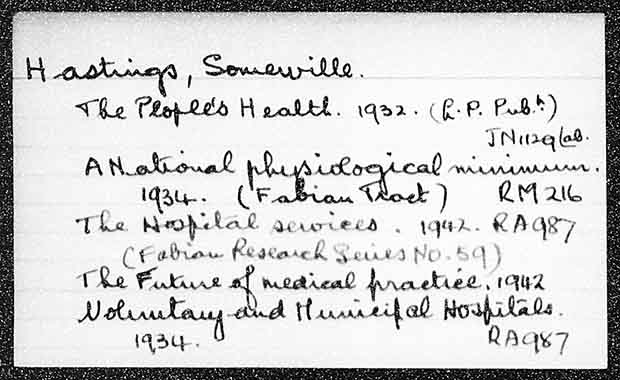 Hastings, Somerville.
The People's Health. 1932. (L.P. Pub.n)
JN1129Lab.
A National physiological minimum.
1934. (Fabian Tract) RM216
The Hospital services. 1942. RA987
(Fabian Research Series No. 59)
The Future of medical practice. 1942
Voluntary and Municipal Hospitals.
1934. RA987